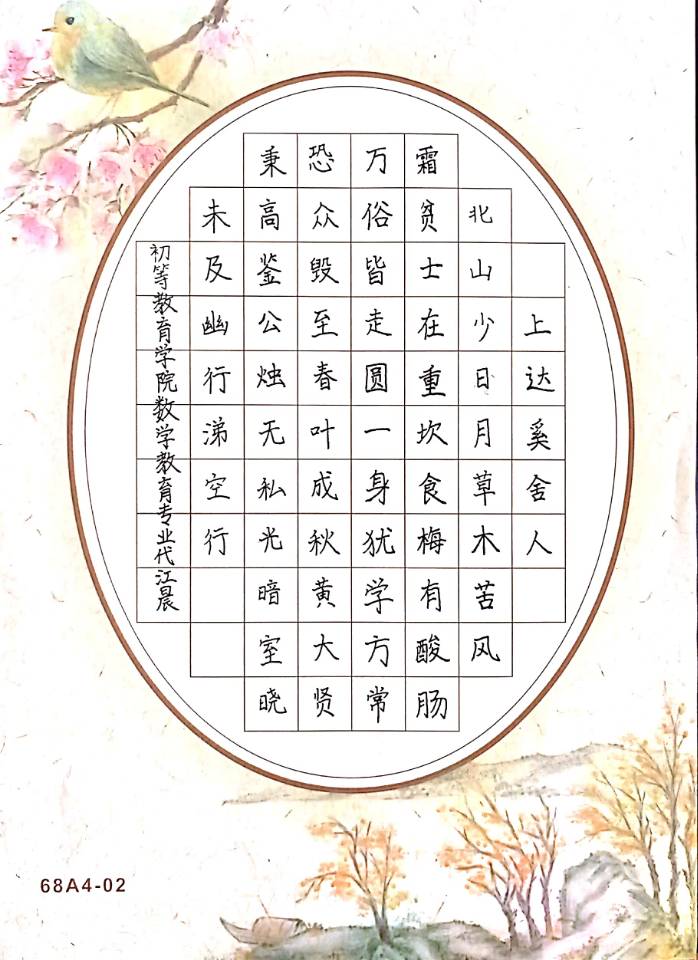 上达奚舍人
北山少日月草木苦风
霜贫士在重坎食梅有酸肠
万俗皆走圆一身犹学方常
恐众毁至春叶成秋黄大贤
秉高鉴公烛无私光暗室晓
未及幽行涕空行
初等教育学院数学教育专业代江晨
68A4-02